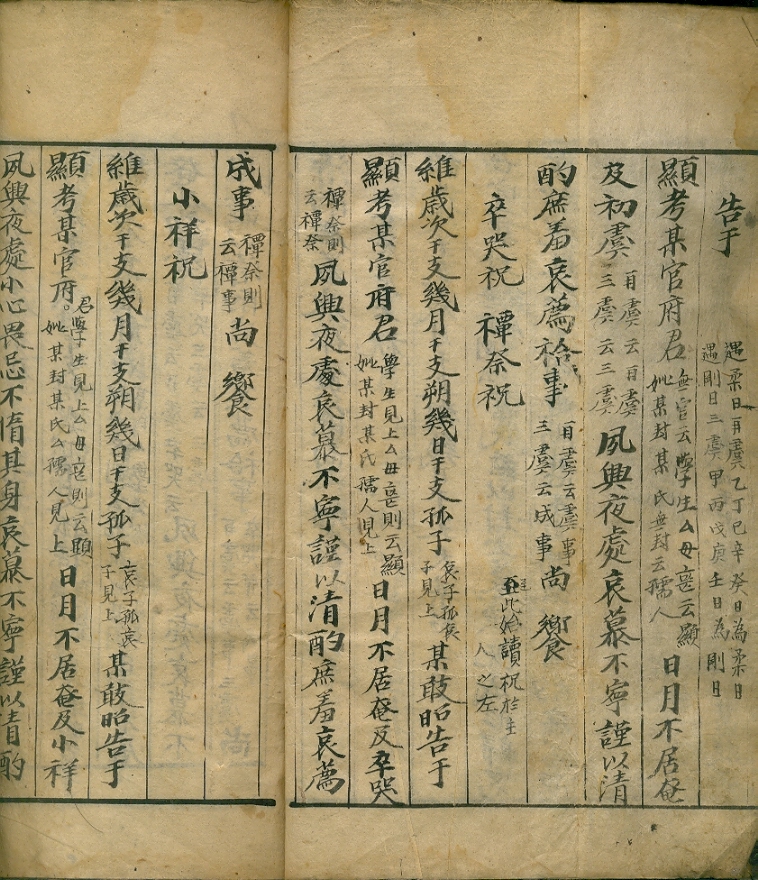 告于 遇柔日再虞乙丁巳辛癸日為柔日
遇剛日三虞甲丙戊庚壬日為剛日
顯考某官府君 無官云學生么母喪云顯
妣某封某氏無封云孺人 日月不居奄
及初虞 再虞云再虞
三虞云三虞 夙興夜處哀慕不寧謹以清
酌庶羞哀薦祫事 再虞云虞事
三虞云成事 尚 饗
卒哭祝 禫祭祝 至此始讀祝於主
人之左
維歲次干支幾月干支朔幾日干支孤子 哀子孤哀
子見上 某敢昭告于
顯考某官府君 學生見上么母喪則云顯
妣某封某氏孺人見上 日月不居奄及卒哭
禫祭則
云禫祭 夙興夜處哀慕不寧謹以清酌庶羞哀薦
成事 禫祭則
云禫事 尚 饗
小祥祝
維歲次干支幾月干支朔幾日干支孤子 哀子孤哀
子見上 某敢昭告于
顯考某官府。 君學生見上么母喪則云顯
妣某封某氏么孺人見上 日月不居奄及小祥
夙興夜處小心畏忌不惰其身哀慕不寧謹以清酌